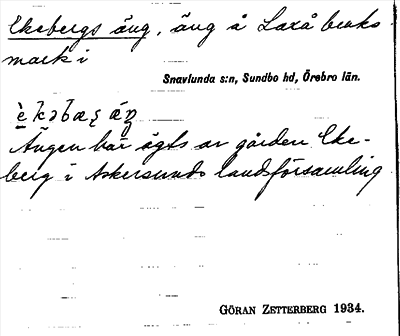 Ekebergs äng, äng å Laxå bruks
mark i
Snavlunda s:n, Sundbo hd, Örebro län.
Ängen har ägts av gården Eke-
berg i Askersunds landsförsamling
GÖRAN ZETTERBERG 1934.